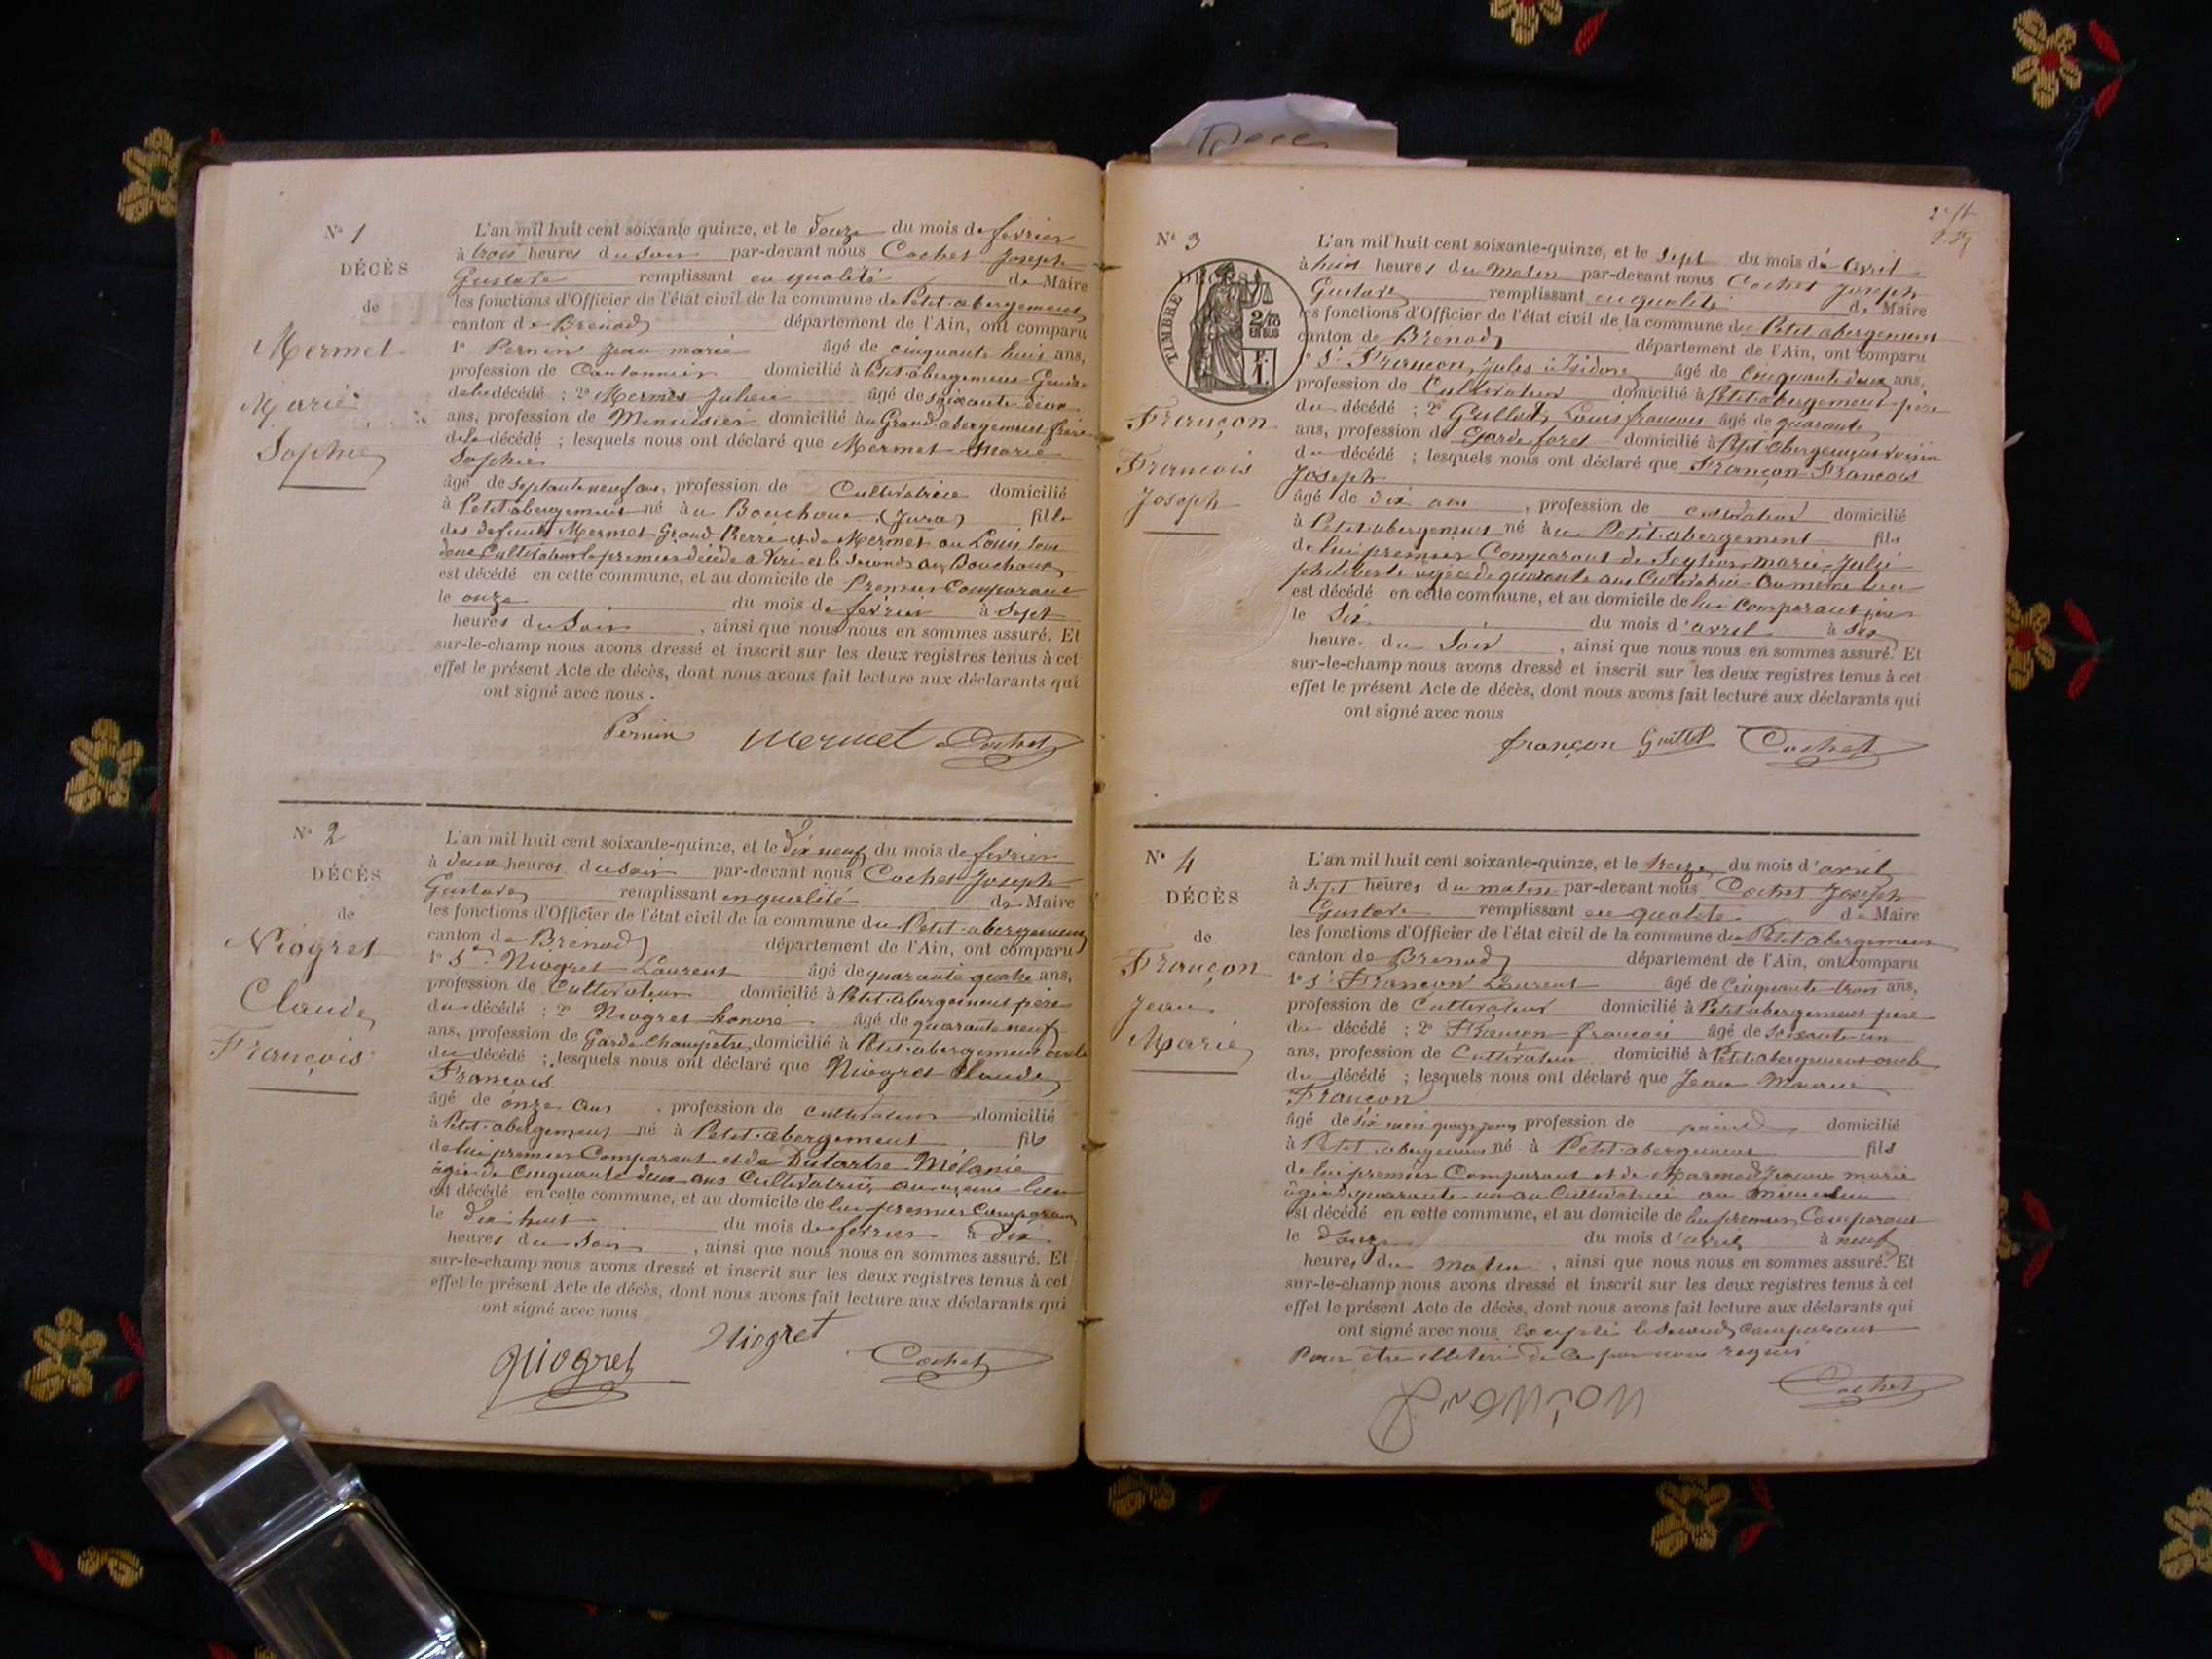 Décès
N° 1
DÉCÈS
de
Mermet
Marie
Sophie
L'an mil huit cent soixante quinze, et le douze du mois de février
à trois heures du soir par-devant nous Cochet Joseph
Gustave remplissant en qualité de Maire
les fonctions d'Officier de l'état civil de la commune de Petit-abergement
canton de Brénod département de l'Ain, ont comparu
1° Pernin Jean marie âgé de cinquante huit ans,
profession de Cantonnier domicilié à Petit-abergement Gendre
de la décédé ; 2° Mermet Julien âgé de soixante deux
ans, profession de Menuisier domicilié au Grand-abergement frère
de la décédé ; lesquels nous ont déclaré que Mermet Marie
Sophie
âgé de septante neuf ans, profession de Cultivatrice domicilié
à Petit abergement né au Bouchoux (Jura) fille
des defunts Mermet Grand Pierre et de Mermet au Louis tous
deux Cultivateurs le premier décédé à Viry et le second au Bouchoux
est décédé en cette commune, et au domicile de Premier Comparant
le onze du mois de février à sept
heures du Soir, ainsi que nous nous en sommes assuré. Et
sur-le-champ nous avons dressé et inscrit sur les deux registres tenus à cet
effet le présent Acte de décès, dont nous avons fait lecture aux déclarants qui
ont signé avec nous.
Pernin Mermet Cochet
N° 2
DÉCÈS
de
Niogret
Claude
François
L'an mil huit cent soixante-quinze, et le Dix neuf du mois de fevrier
à deux heures du soir par-devant nous Cochet Joseph
Gustave remplissant en qualité de Maire
les fonctions d'Officier de l'état civil de la commune du Petit-abergement
canton de Brénod département de l'Ain, ont comparu
1° Sr Niogret Laurent âgé de quarante quatre ans,
profession de Cultivateur domicilié à Petit-abergement père
du décédé ; 2° Niogret honoré âgé de quarante neuf
ans, profession de Garde Champêtre, domicilié à Petit-abergement oncle
du décédé ; lesquels nous ont déclaré que Niogret Claude
Francois
âgé de onze ans, profession de cultivateur domicilié
à Petit-abergement né à Petit-abergement fils
de lui premier Comparant et de Dutartre Mélanie
âgée de Cinquante deux ans Cultivatrice au même lieu
est décédé en cette commune, et au domicile de lui premier Comparant
le dix huit du mois de fevrier à dix
heures du Soir, ainsi que nous nous en sommes assuré. Et
sur-le-champ nous avons dressé et inscrit sur les deux registres tenus à cet
effet le présent Acte de décès, dont nous avons fait lecture aux déclarants qui
ont signé avec nous
Niogret Niogret Cochet
N° 3
DÉCÈS
TIMBRE
2/10
EN SUS
1 F.
Françon
Francois
Joseph
L'an mil huit cent soixante-quinze, et le sept du mois de Avril
à huit heures du Matin par-devant nous Cochet Joseph
Gustave remplissant en qualité de Maire
les fonctions d'Officier de l'état civil de la commune du Petit abergement
canton de Brénod département de l'Ain, ont comparu
1° Sr Françon, Jules Isidore âgé de Cinquante deux ans,
profession de Cultivateur domicilié à Petit-abergement père
du décédé ; 2° Guillot Louis francois âgé de quarante
ans, profession de Garde foret domicilié à Petit-abergement voisin
du décédé ; lesquels nous ont déclaré que Françon Francois
Joseph
âgé de dix ans, profession de cultivateur domicilié
à Petit-abergement né à Petit-abergement fils
de lui premier Comparant de marie Julie
philiberte âgée de quarante ans Cultivatrice au même lieu
est décédé en cette commune, et au domicile de lui Comparant père
le Six du mois d'avril à six
heure. du Soir, ainsi que nous nous en sommes assuré. Et
sur-le-champ nous avons dressé et inscrit sur les deux registres tenus à cet
effet le présent Acte de décès, dont nous avons fait lecture aux déclarants qui
ont signé avec nous
françon Guillot Cochet
N° 4
DÉCÈS
de
Françon
Jean
Marie
L'an mil huit cent soixante-quinze, et le treize du mois d'avril
à sept heures du matin par-devant nous Cochet Joseph
Gustave remplissant en qualité de Maire
les fonctions d'Officier de l'état civil de la commune du Petit-abergement
canton de Brénod département de l'Ain, ont comparu
1° Sr Françon Laurent âgé de Cinquante trois ans,
profession de Cultivateur domicilié à Petit abergement père
du décédé ; 2° Françon francois âgé de soixante-un
ans, profession de Cultivateur domicilié à Petit abergement oncle
du décédé ; lesquels nous ont déclaré que Jean Marie
Françon
âgé de six mois quinze jours profession de domicilié
à Petit abergement né à Petit-abergement fils
de lui premier Comparant et de Jeanne marie
âgée de quarante un an Cultivatrice au même lieu
est décédé en cette commune, et au domicile de lui premier Comparant
le douze du mois d'avril à neuf
heures du Matin, ainsi que nous nous en sommes assuré. Et
sur-le-champ nous avons dressé et inscrit sur les deux registres tenus à cet
effet le présent Acte de décès, dont nous avons fait lecture aux déclarants qui
ont signé avec nous Excepté le second comparant
Pour être illetéré de ce par nous requis
Cochet